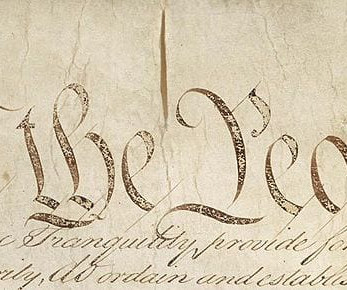 the Peo
Tranquility, provide fo
rity, do ordain and establis